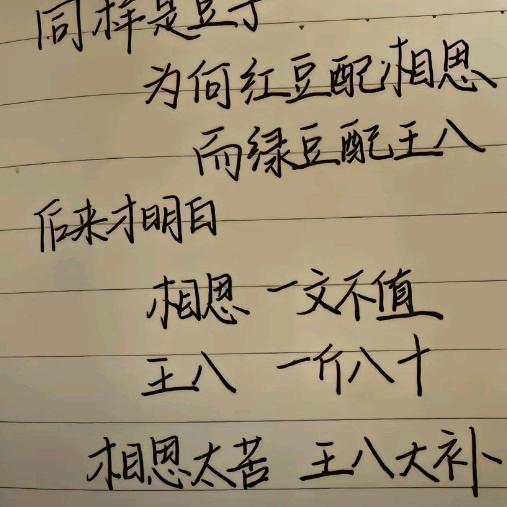 同样是豆子
为何红豆配相思
而绿豆配王八
后来才明白
相思 一文不值
王八 一斤八十
相思太苦 王八大补